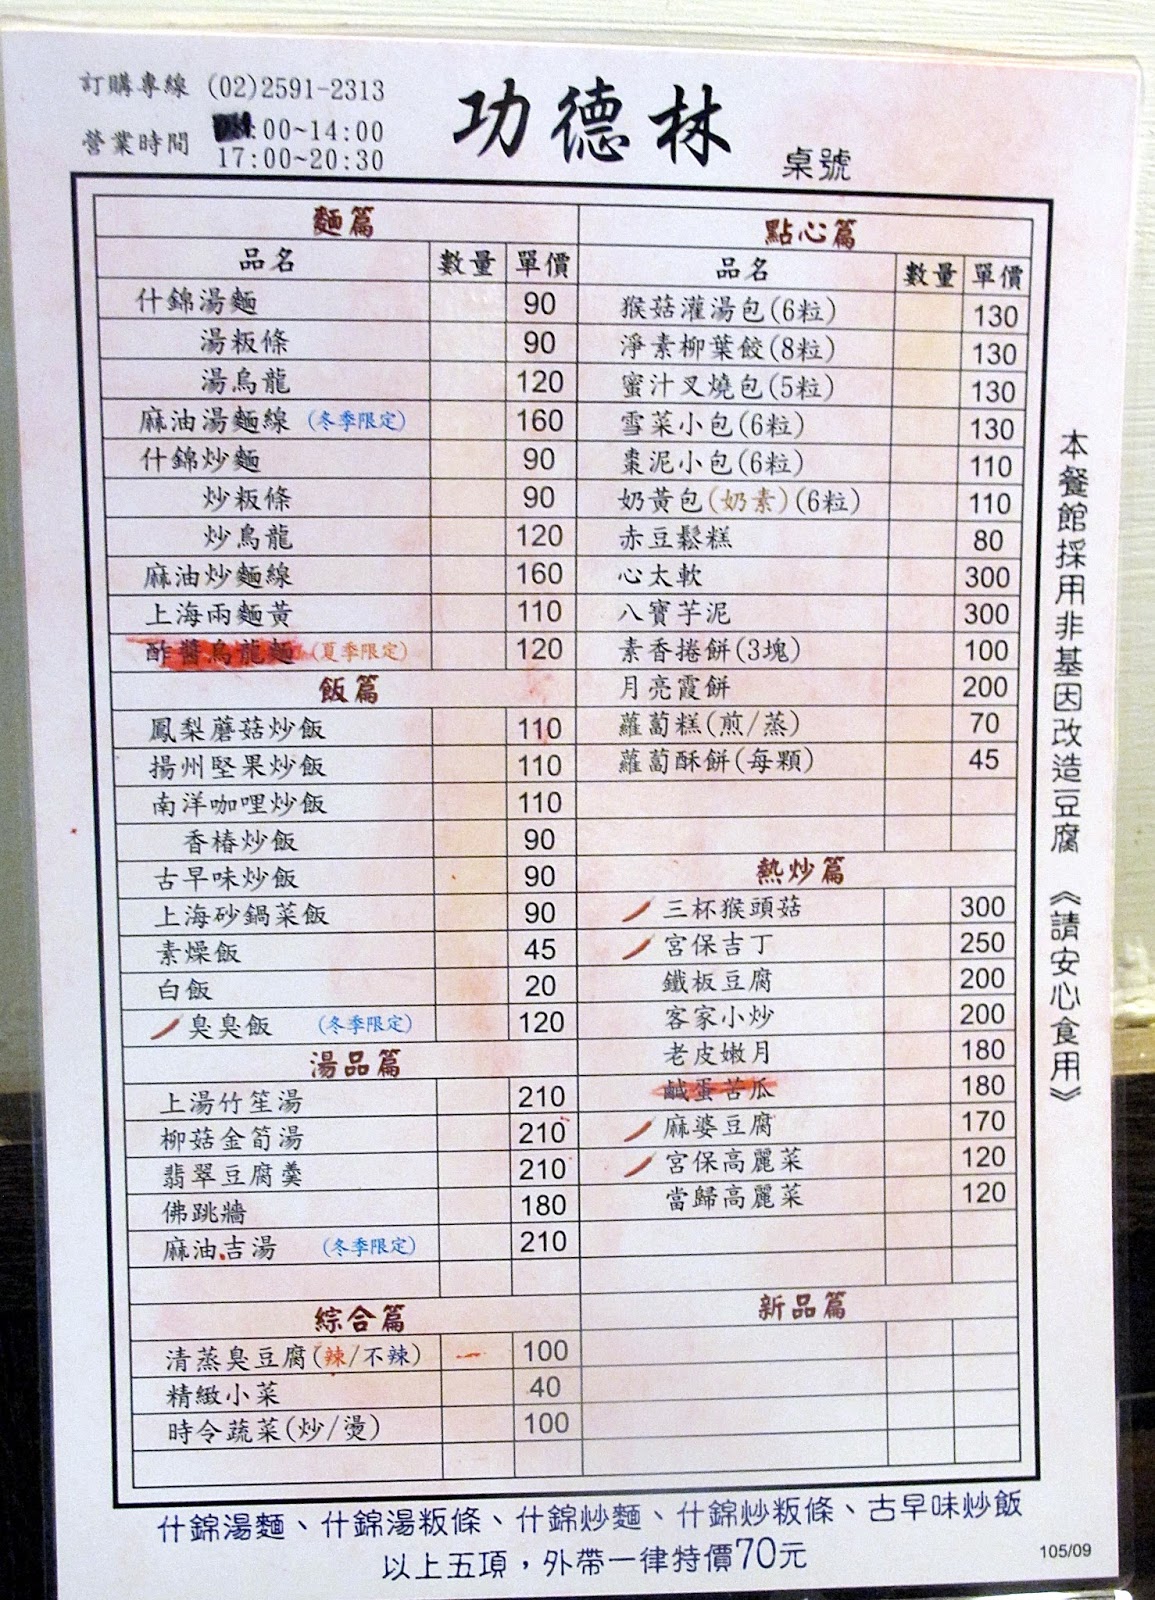 訂購專線 (02)2591-2313
功德林
營業時間 :00~14:00
17:00~20:30
桌號
麵篇
品名 數量 單價
什錦湯麵 90
湯粄條 90
湯烏龍 120
麻油湯麵線 (冬季限定) 160
什錦炒麵 90
炒粄條 90
炒烏龍 120
麻油炒麵線 160
上海兩麵黃 110
酢醬烏龍麵 (夏季限定) 120
飯篇
鳳梨蘑菇炒飯 110
揚州堅果炒飯 110
南洋咖哩炒飯 110
香椿炒飯 90
古早味炒飯 90
上海砂鍋菜飯 90
素燥飯 45
白飯 20
臭臭飯 (冬季限定) 120
湯品篇
上湯竹笙湯 210
柳菇金筍湯 210
翡翠豆腐羹 210
佛跳牆 180
麻油吉湯 (冬季限定) 210
綜合篇
清蒸臭豆腐(辣/不辣) 100
精緻小菜 40
時令蔬菜(炒/燙) 100
點心篇
品名 數量 單價
猴菇灌湯包(6粒) 130
淨素柳葉餃(8粒) 130
蜜汁叉燒包(5粒) 130
雪菜小包(6粒) 130
棗泥小包(6粒) 110
奶黃包(奶素)(6粒) 110
赤豆鬆糕 80
心太軟 300
八寶芋泥 300
素香捲餅(3塊) 100
月亮霞餅 200
蘿蔔糕(煎/蒸) 70
蘿蔔酥餅(每顆) 45
熱炒篇
三杯猴頭菇 300
宮保吉丁 250
鐵板豆腐 200
客家小炒 200
老皮嫩月 180
鹹蛋苦瓜 180
麻婆豆腐 170
宮保高麗菜 120
當歸高麗菜 120
新品篇
本餐館採用非基因改造豆腐 《請安心食用》
什錦湯麵、什錦湯粄條、什錦炒麵、什錦炒粄條、古早味炒飯
以上五項，外帶一律特價70元
105/09